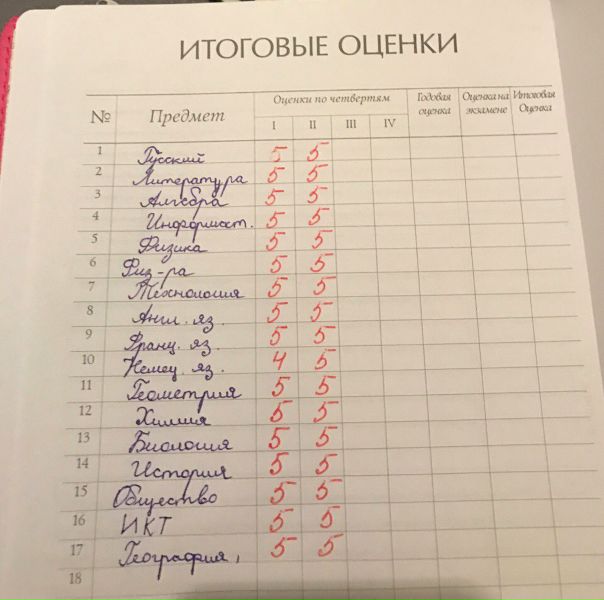 ИТОГОВЫЕ ОЦЕНКИ
№ Предмет Оценки по четвертям Годовая оценка Оценка на экзамене Итоговая Оценка
I II III IV
1 Русский 5 5
2 Литература 5 5
3 Алгебра 5 5
4 Информат. 5 5
5 Физика 5 5
6 Физ-ра 5 5
7 Технология 5 5
8 Англ. яз. 5 5
9 Франц. яз. 5 5
10 Немец. яз. 4 5
11 Геометрия 5 5
12 Химия 5 5
13 Биология 5 5
14 История 5 5
15 Общество 5 5
16 ИКТ 5 5
17 География, 5 5
18